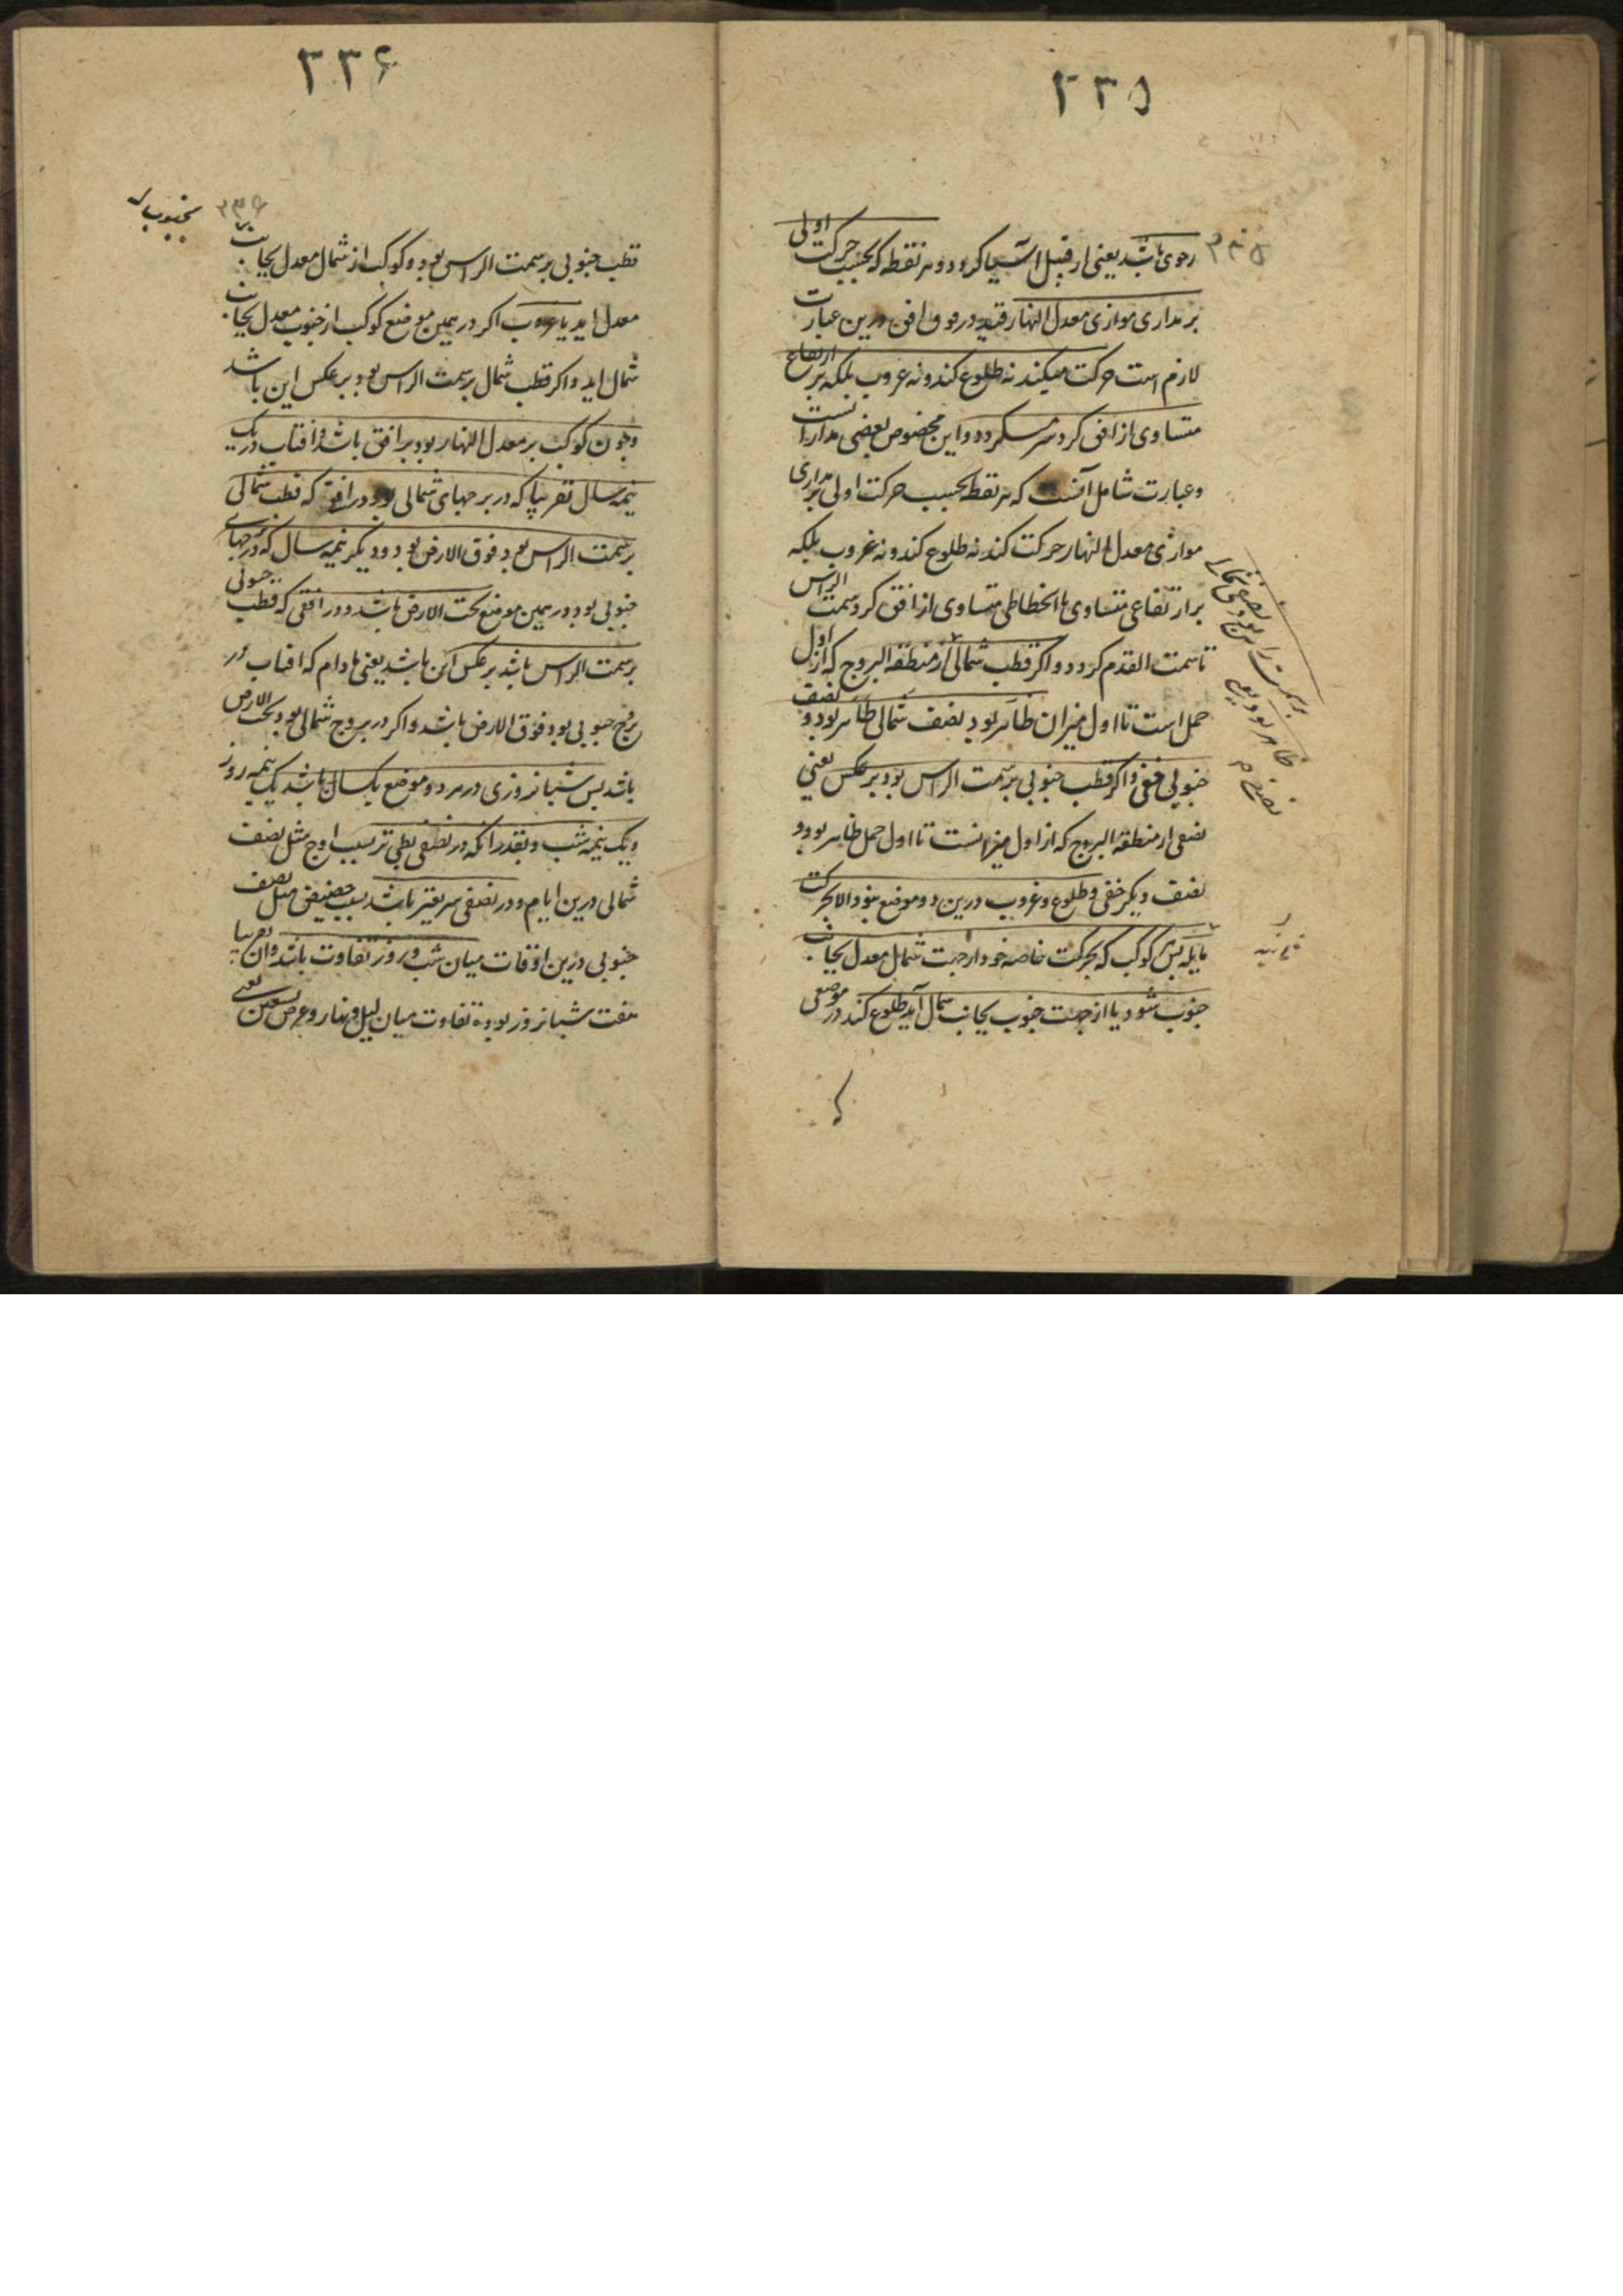 ۳۳۵
۳۳۵
رحوی باشد یعنی از قبیل آسیا کردد و هر نقطه که بحسب حرکت اولی
بر مداری موازی معدل النهار قید در فوق افق درین عبارت
لازم است حرکت میکند نه طلوع کند و نه غروب بلکه بر ارتفاع
متساوی از افق کرد سر میکردد و این مخصوص بعضی مداراتست
و عبارت شامل آنست که هر نقطه بحسب حرکت اولی بر مداری
موازی معدل النهار حرکت کند نه طلوع کند و نه غروب بلکه
بر ارتفاعی متساوی یا انحطاطی متساوی از افق کرد سمت الراس
تا سمت القدم کردد و اکر قطب شمالی از منطقة البروج که از اول
حمل است تا اول میزان ظاهر بود نصف شمالی ظاهر بود و نصف
جنوبی خفی و اکر قطب جنوبی بر سمت الراس بود بر عکس یعنی
نصفی از منطقة البروج که از اول میزانست تا اول حمل ظاهر بود و
نصف دیکر خفی و طلوع و غروب درین دو موضع نبود الا بحرکت
ثانیه
پس کوکب که بحرکت خاصه خود از جهت شمال معدل بجانب
جنوب شود یا از جهت جنوب بجانب شمال آید طلوع کند در موضعی
۳۳۶
۳۳۶
بجنوب
قطب جنوبی بر سمت الراس بود و کوکب از شمال معدل بجانب
معدل اید یا غروب اکر در همین موضع کوکب از جنوب معدل بجانب
شمال اید و اکر قطب شمال بر سمت الراس بود بر عکس این باشد
و چون کوکب بر معدل النهار بود بر افق باشد و افتاب در یک
نیمه سال تقریبا که در برجهای شمالی بود در افقی که قطب شمالی
بر سمت الراس بود فوق الارض بود و دیکر نیمه سال که در برجهای
جنوبی بود در همین موضع تحت الارض باشد و در افقی که قطب جنوبی
بر سمت الراس باشد بر عکس این باشد یعنی مادام که افتاب در
بروج جنوبی بود فوق الارض باشد و اکر در بروج شمالی بود تحت الارض
باشد پس شبانروزی در هر دو موضع یکسال باشد یک نیمه روز
و یک نیمه شب و بقدر انکه در نصفی بطی تر بسبب اوج مثل نصف
شمالی درین ایام و در نصفی سریعتر باشد بسبب حضیض مثل نصف
جنوبی درین اوقات میان شب و روز تفاوت باشد و ان تقریبا
هفت شبانروز بود تفاوت میان لیل و نهار و عرض تسعین یعنی